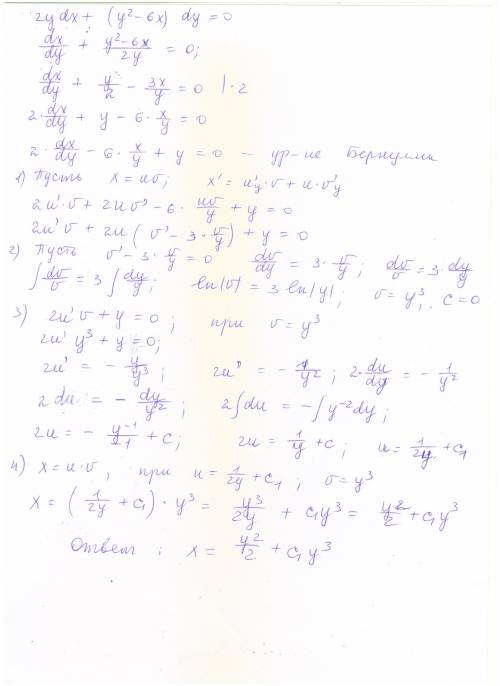 2y dx + (y² - 6x) dy = 0
dx/dy + (y² - 6x)/2y = 0;
dx/dy + y/2 - 3x/y = 0 | · 2
2 · dx/dy + y - 6 · x/y = 0
2 · dx/dy - 6 · x/y + y = 0 – ур-ие Бернулли
1) Пусть x = uv; x' = u'y · v + u · v'y
2u' · v + 2uv' - 6 · uv/y + y = 0
2u'v + 2u (v' - 3 · v/y) + y = 0
2) Пусть v' - 3 · v/y = 0 dv/dy = 3 · v/y; dv/v = 3 · dy/y
∫ dv/v = 3 ∫ dy/y; ln|v| = 3 ln|y|, v = y³, c = 0
3) 2u'v + y = 0; при v = y³
2u' y³ + y = 0;
2u' = - y/y³; 2u' = - 1/y²; 2 · du/dy = - 1/y²
2 du = - dy/y²; 2∫du = -∫y⁻²dy;
2u = - y⁻¹/-1 + c; 2u = 1/y + c; u = 1/2y + c₁
4) x = u · v, при u = 1/2y + c₁; v = y³
x = (1/2y + c₁) · y³ = y³/2y + c₁y³ = y²/2 + c₁y³
Ответ: x = y²/2 + c₁y³